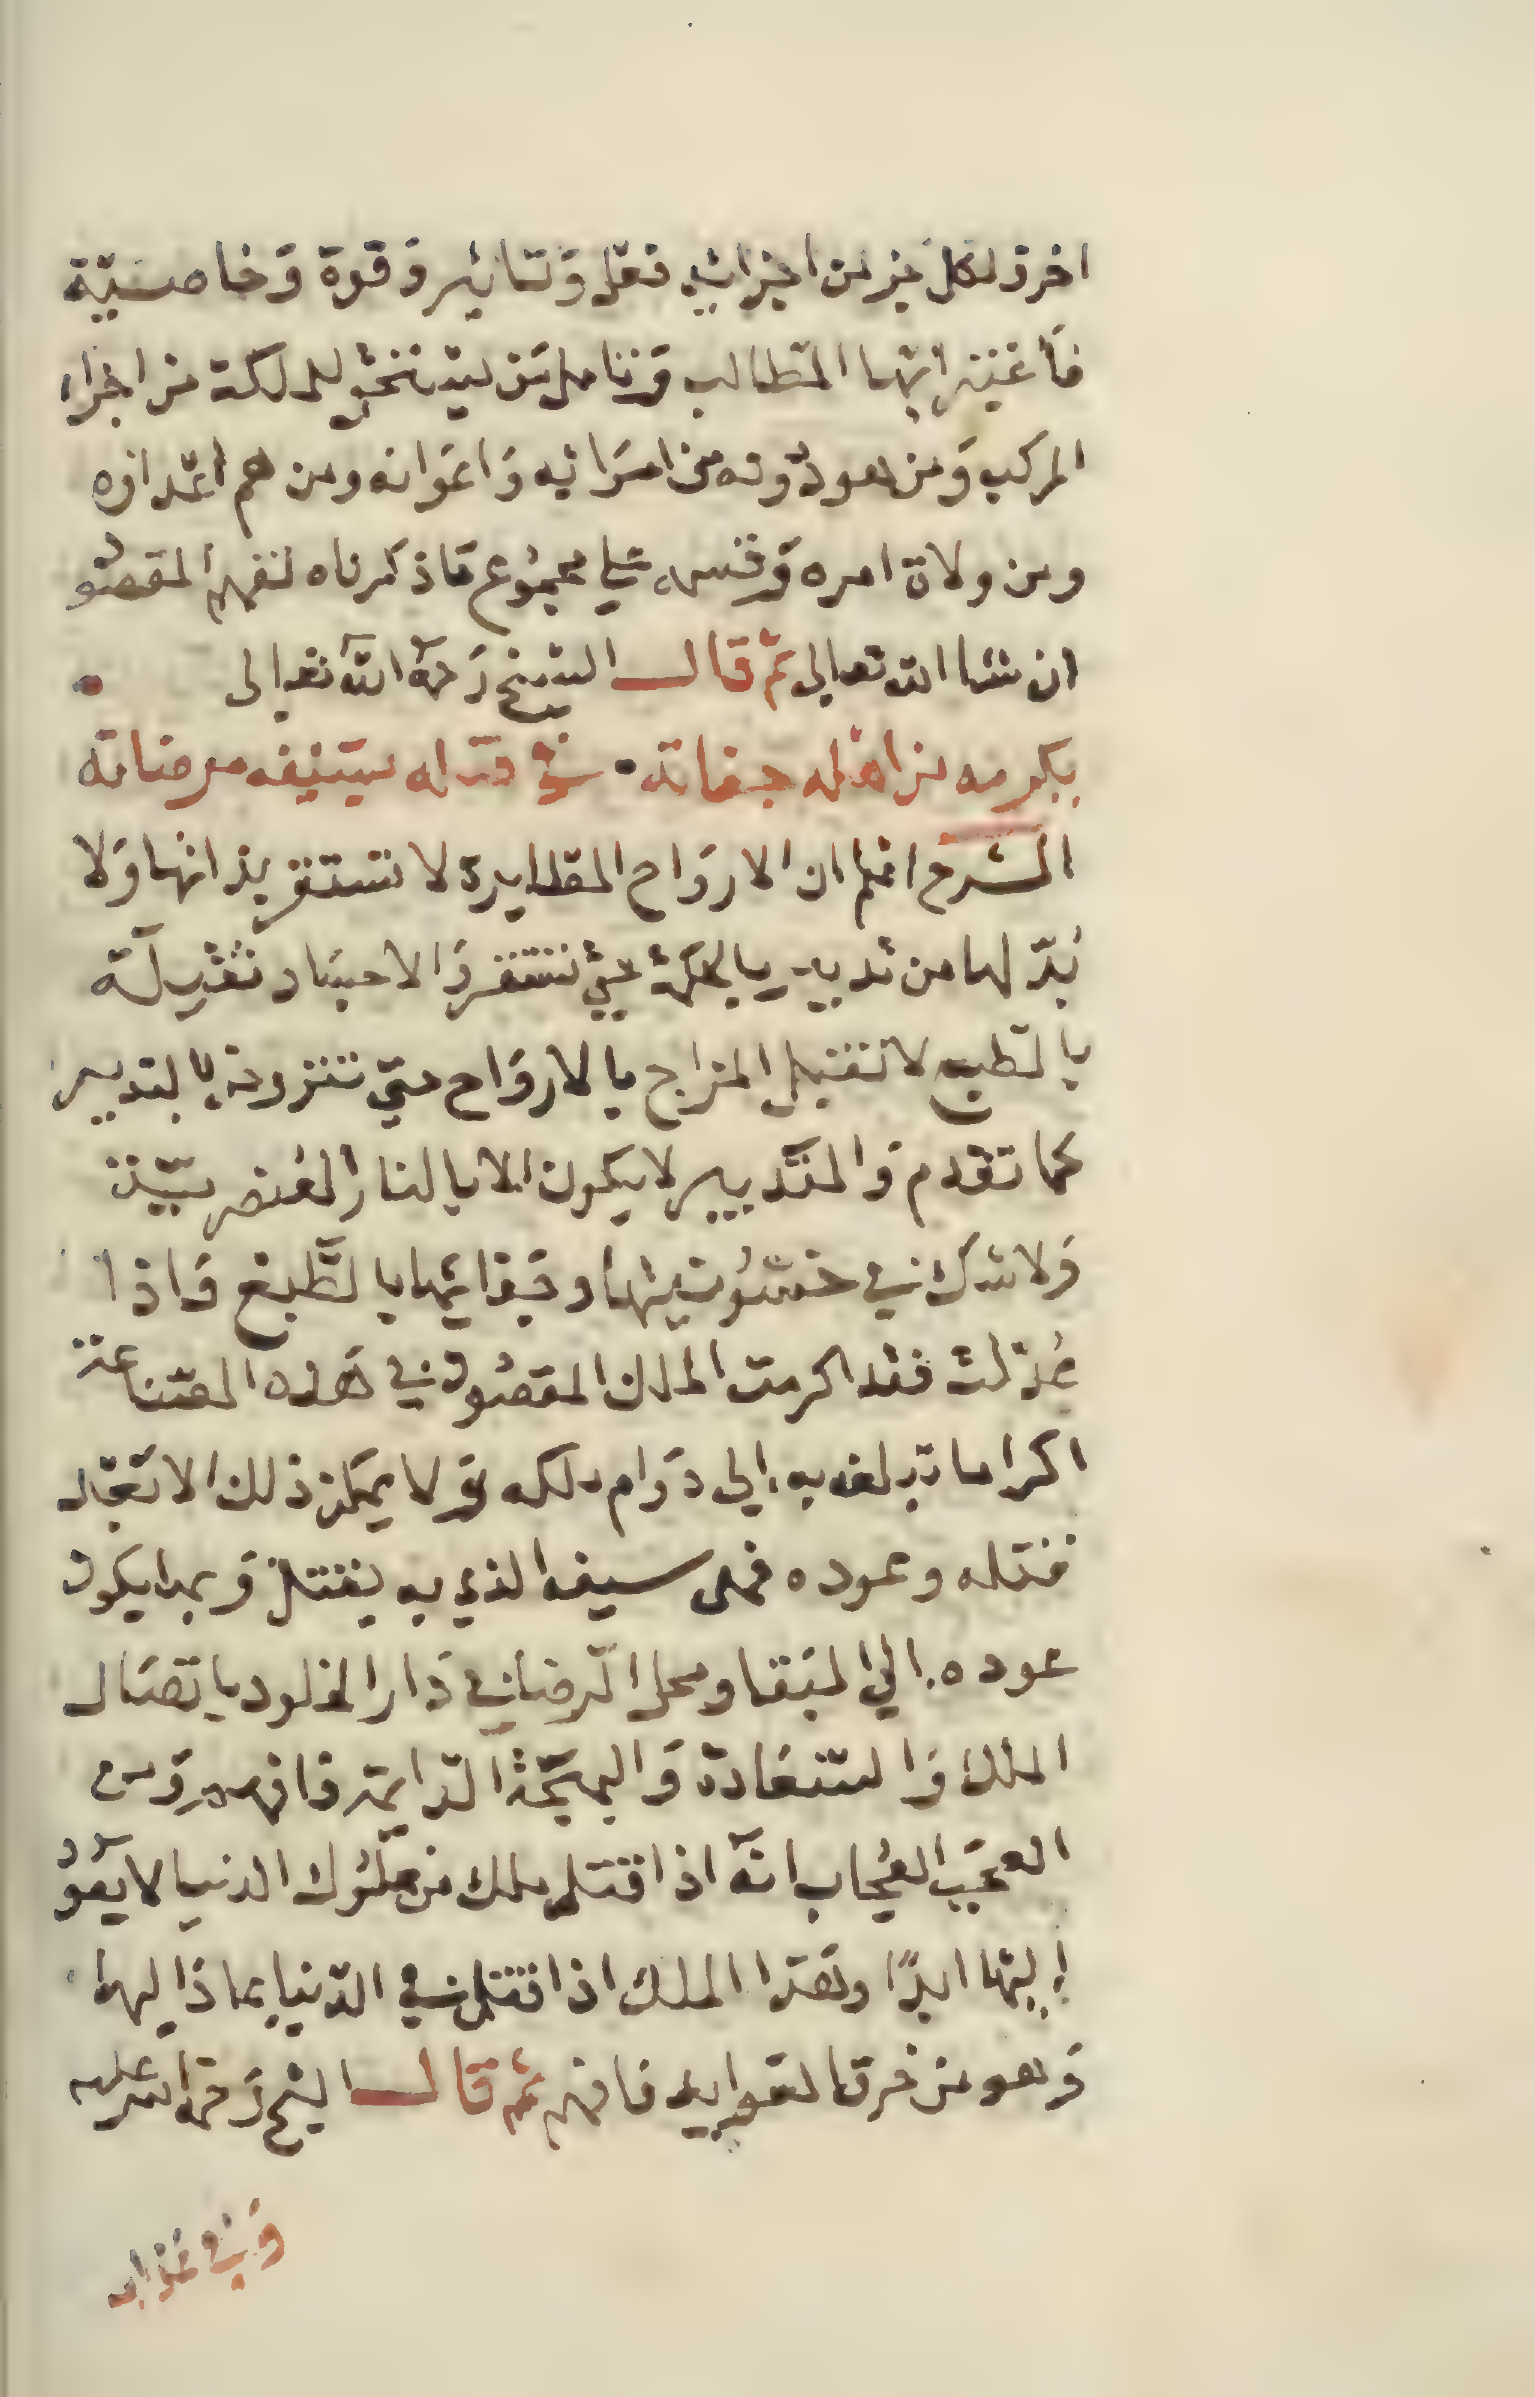 اخرو لكل جزء من اجزائه فعل وتاثير وقوة وخاصيّة
فأعتبر ايّها الطالب وتامل من يستحق المملكة من اجزاء
المركب ومن هو دونه من امرائه واعوانه ومن هم اعداؤه
ومن ولاة امره وقس على مجموع ما ذكرناه لتفهم المقصود
ان شا الله تعالى ثم قال الشيخ رحمه الله تعالى
يكرمه من اهله جفاته في قتله بسيفه مرضاته
الشرح اعلم ان الارواح الطايرة لا تستقر بذاتها ولا
بدّ لها من تدبير بالحكمة حتى تستقر والاجساد ثقيلة
بالطبع لا تقبل المزاج بالارواح حتى تتروحن بالتدبير
كما تقدم والتدبير لا يكون الا بالنار العنصريّة
ولا شك في خشونيتها وجفائها بالطبع واذا
عدلت فقد اكرمت الملك المقصود في هذه الصناعة
اكراما تبلغه به الى دوام ملكه ولا يمكن ذلك الا بعد
قتله وعوده فهى سيفه الذي به يقتل وبها يكون
عوده الي البقا ومحل الرضا في دار الخلود باتصال
الملك والسعادة والبهجة الدايمة فافهم ومن
العجب العجاب انه اذا قتل ملك من ملوك الدنيا لا يعود
إليها ابدًا وهذا الملك اذا قتل في الدنيا عاد اليها
وهو من خرق العوايد فافهم ثم قال الشيخ رحمة الله عليه
وفي عذاب